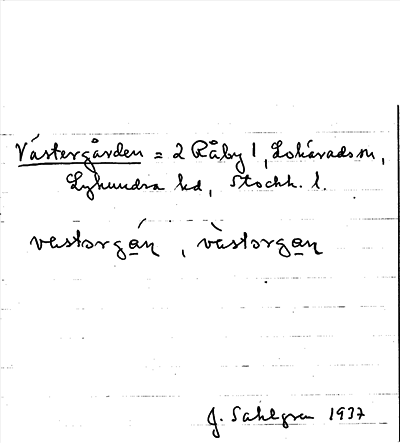 Västergården = 2 Råby 1, Lohärads sn,
Lyhundra hd, Stockh. l.
vestorgán, vèstorgan
J. Sahlgren 1937